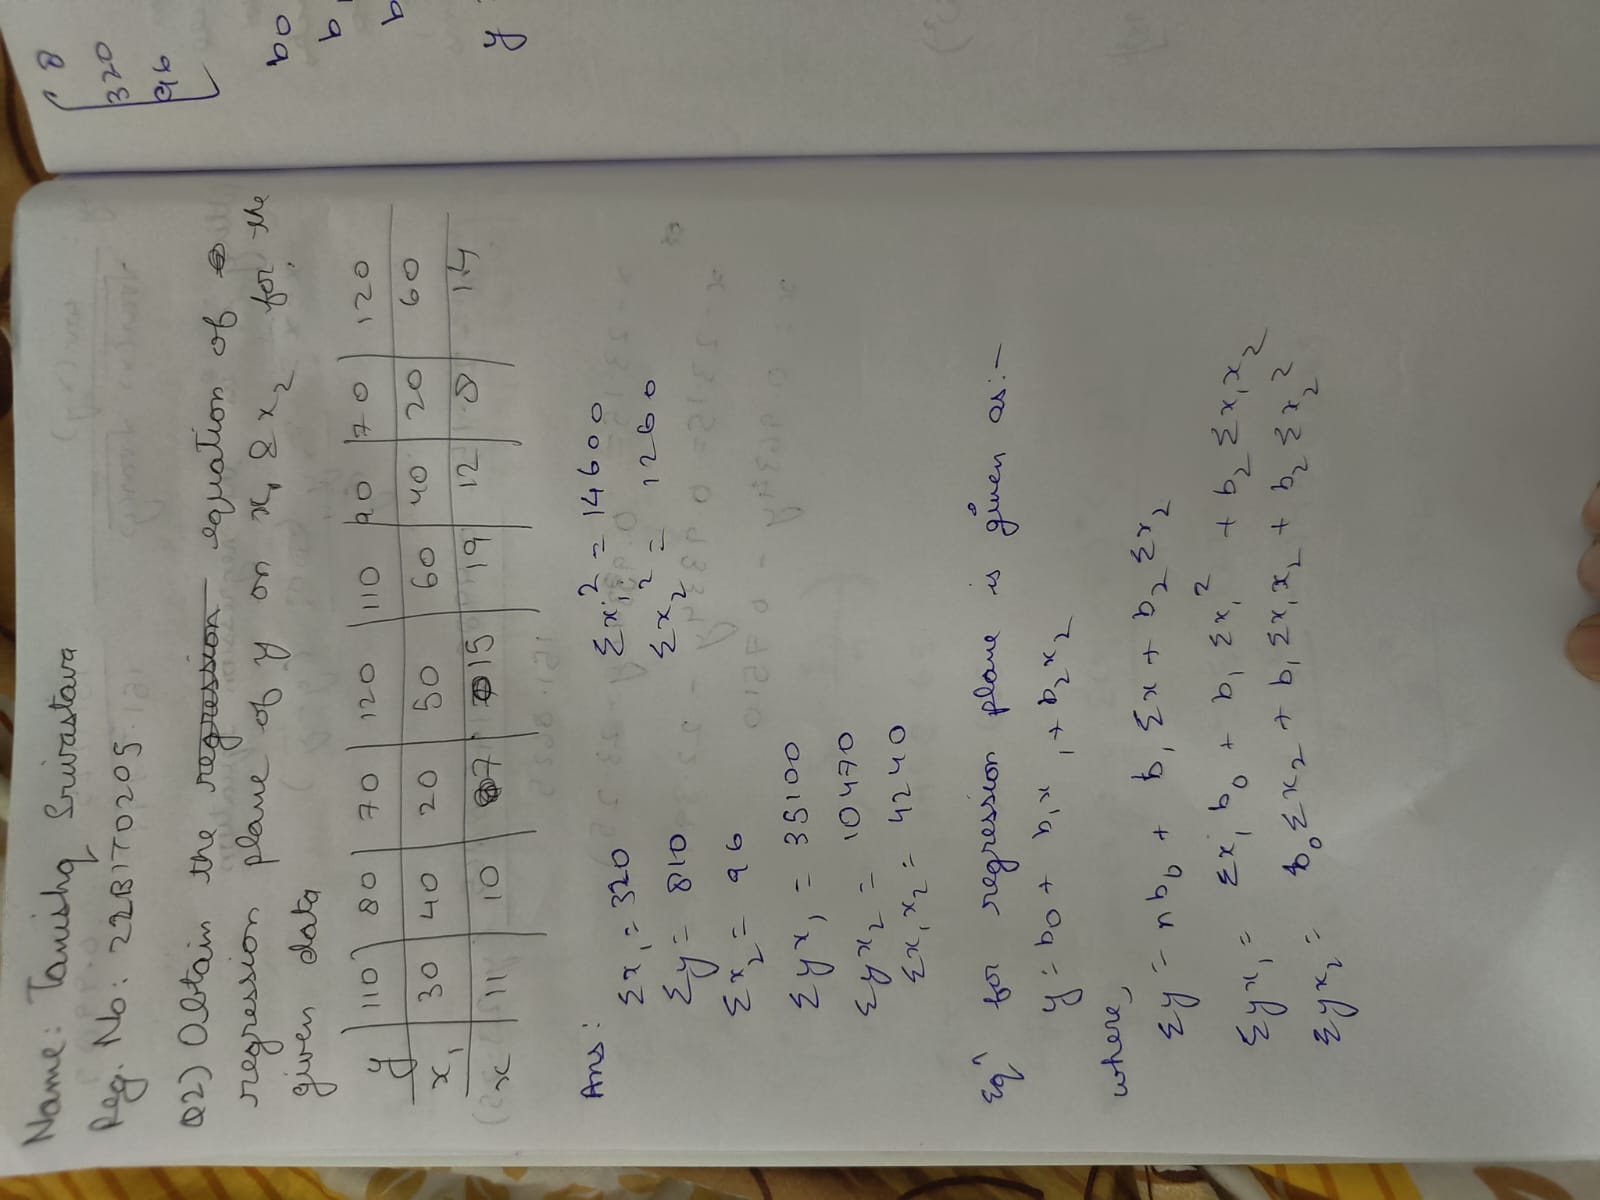 Name: Tanishq Srivastava
Reg. No: 22BIT0205
Q2) Obtain the regression equation of
regression plane of y on x₁ & x₂ for the
given data
y 110 80 70 120 110 90 70 120
x₁ 30 40 20 50 60 40 20 60
x 11 10 7 15 19 12 8 14
Ans:
Σx₁ = 320 Σx₁² = 14600
Σy = 810 Σx₂² = 1260
Σx₂ = 96
Σyx₁ = 35100
Σyx₂ = 10470
Σx₁x₂ = 4240
Eqⁿ for regression plane is given as:-
y = b0 + b₁x₁ + b₂x₂
where,
Σy = nb₀ + b₁Σx + b₂Σx₂
Σyx₁ = Σx₁b₀ + b₁Σx₁² + b₂Σx₁x₂
Σyx₂ = b₀Σx₂ + b₁Σx₁x₂ + b₂Σx₂²
8
320
96
b0
b
b
y